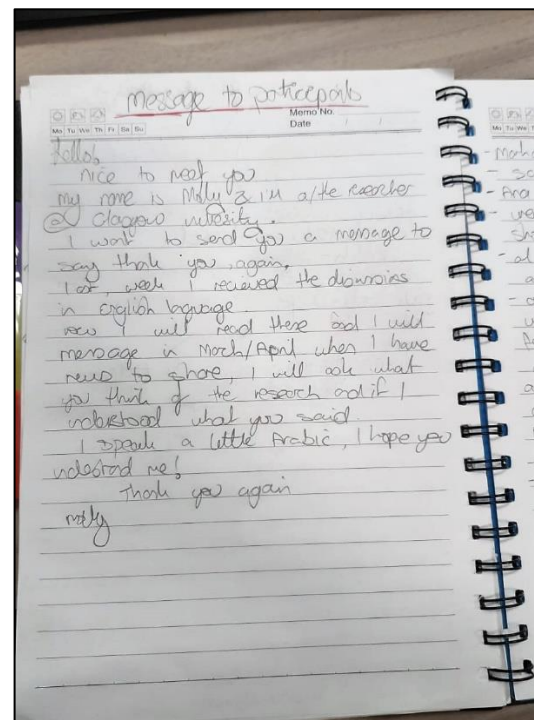 message to participants
Memo No.
Date
Mo Tu We Th Fr Sa Su
Hello!
nice to meet you
my name is Molly & i'm a/the researcher
@ Glasgow university.
I want to send you a message to
say thank you, again.
last week I recieved the
in English language
now I will read these and I will
message in March/April when I have
news to share, I will ask what
you think of the research and if I
understood what you said
I speak a little Arabic, I hope you
understand me!
Thank you again
molly
Mo Tu We